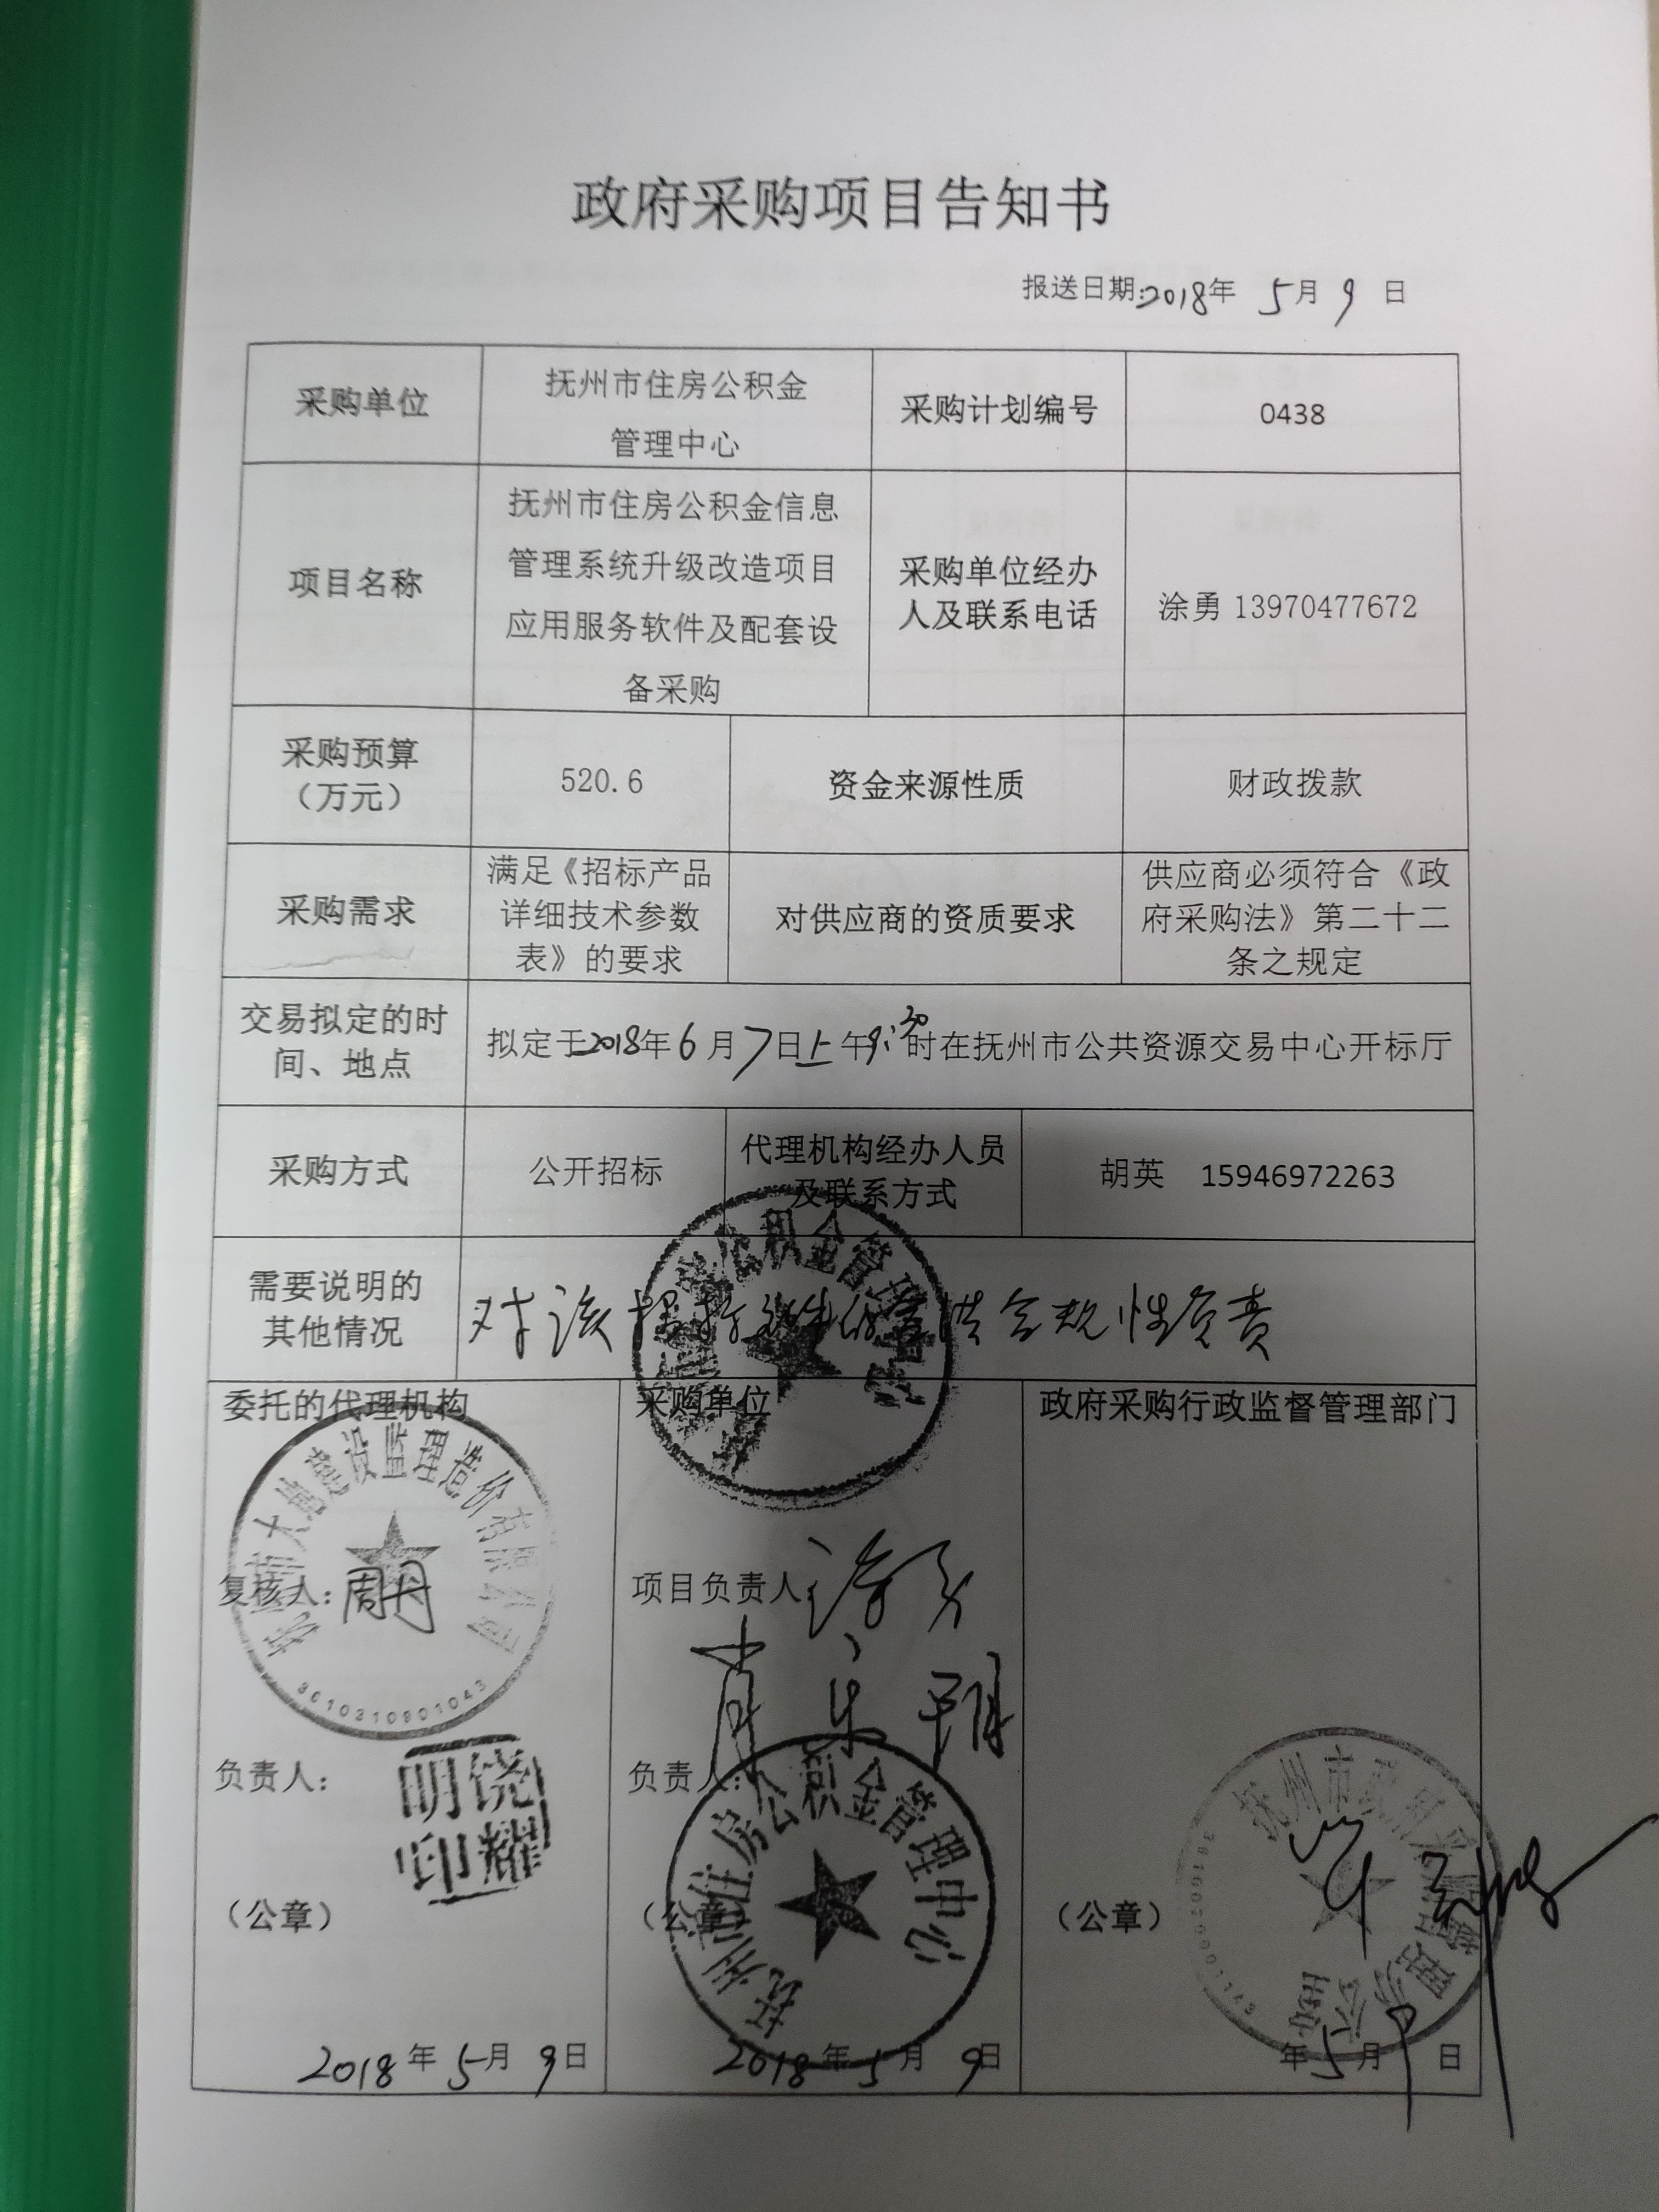 政府采购项目告知书
报送日期:2018年 5月 9 日
采购单位
抚州市住房公积金
管理中心
采购计划编号
0438
项目名称
抚州市住房公积金信息
管理系统升级改造项目
应用服务软件及配套设
备采购
采购单位经办
人及联系电话
涂勇 13970477672
采购预算
（万元）
520.6
资金来源性质
财政拨款
采购需求
满足《招标产品
详细技术参数
表》的要求
对供应商的资质要求
供应商必须符合《政
府采购法》第二十二
条之规定
交易拟定的时
间、地点
拟定于2018年6月7日上午9:30时在抚州市公共资源交易中心开标厅
采购方式
公开招标
代理机构经办人员
及联系方式
胡英 15946972263
需要说明的
其他情况
对该招标文件的合法合规性负责
公积金管理
委托的代理机构
建设监理造价有限公司
复核人：周丹
3610210901043
负责人：
饶耀明印
（公章）
2018年 5月 9日
采购单位
项目负责人
负责人：
抚州市住房公积金管理中心
（公章
2018年 5月 9日
政府采购行政监督管理部门
抚州市政府采
（公章）
年 5月 9 日